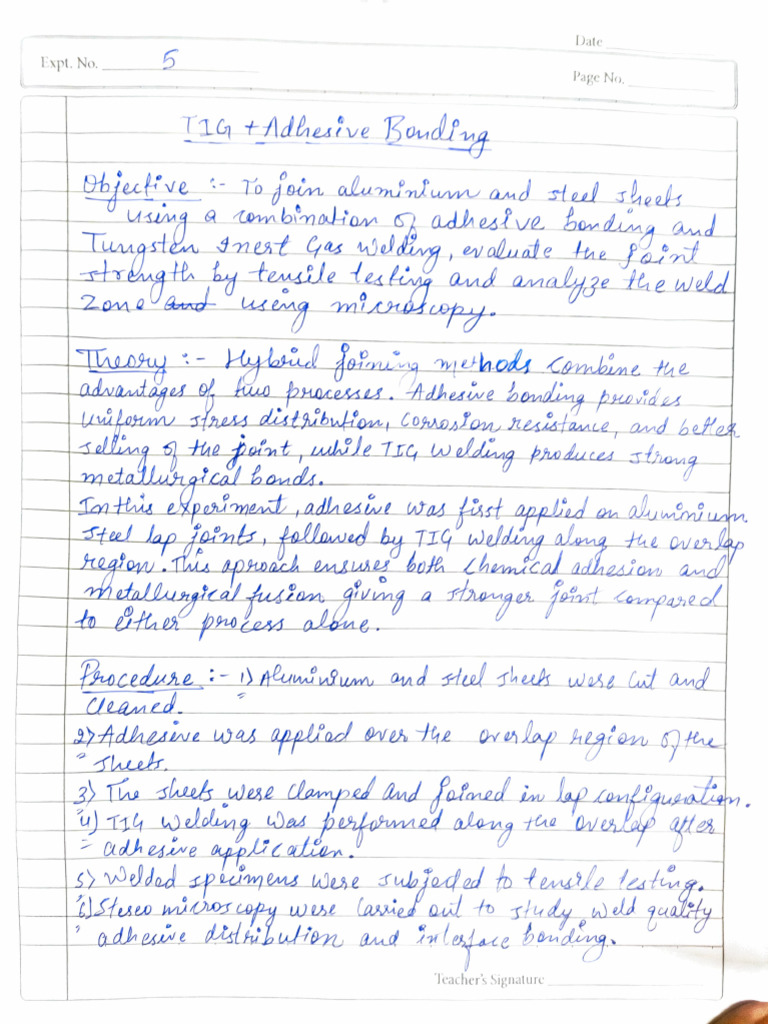 Date
Expt. No. 5
Page No.
TIG + Adhesive Bonding
Objective :- To join aluminium and steel sheets
using a combination of adhesive bonding and
Tungsten Inert Gas Welding, evaluate the joint
strength by tensile testing and analyze the weld
Zone and using microscopy.
Theory :- Hybrid joining methods combine the
advantages of two processes. Adhesive bonding provides
uniform stress distribution, corrosion resistance, and better
selling of the joint, while TIG Welding produces strong
metallurgical bonds.
In this experiment, adhesive was first applied on aluminium.
steel lap joints, followed by TIG welding along the overlap
region. This aproach ensures both chemical adhesion and
metallurgical fusion giving a stronger joint compared
to either process alone.
Procedure :- 1) Aluminium and steel sheets were cut and
cleaned.
2) Adhesive was applied over the overlap region of the
sheets.
3) The sheets were clamped and joined in lap configuration.
4) TIG Welding was performed along the overlap after
adhesive application.
5) Welded specimens were subjected to tensile testing.
6) Stereo microscopy were carried out to study weld quality
adhesive distribution and interface bonding.
Teacher's Signature